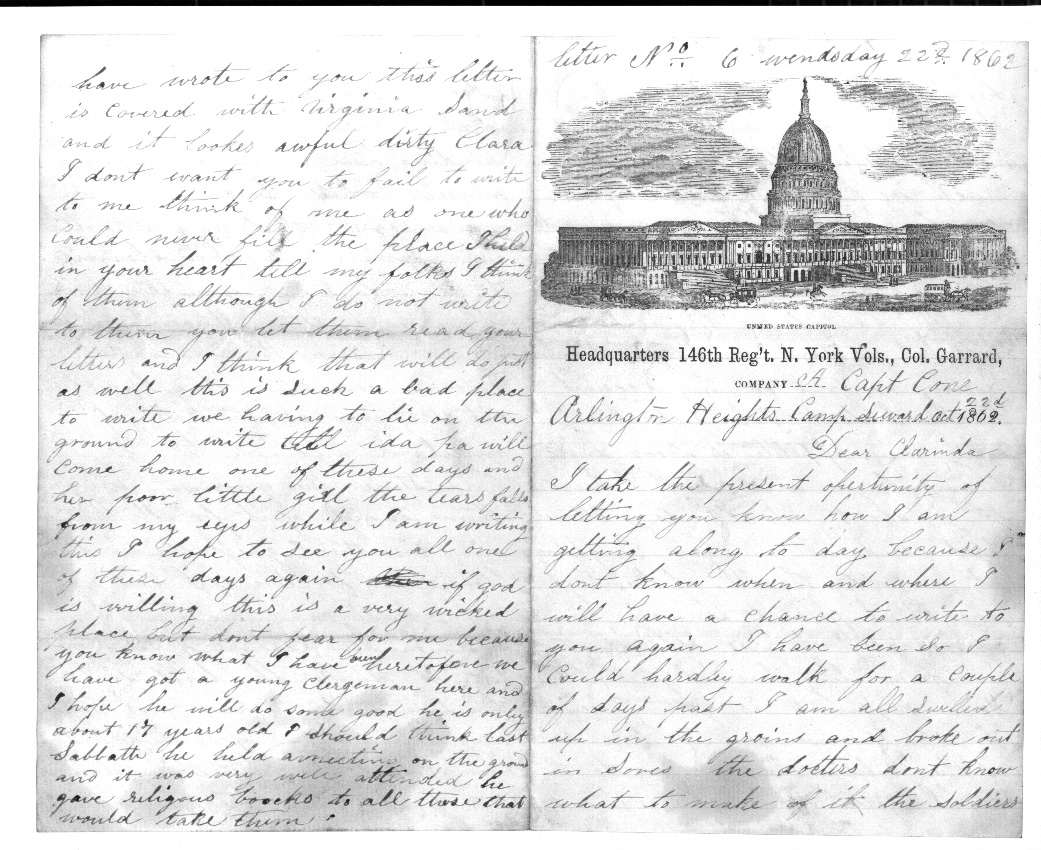 letter No. 6 wendsday 22d. 1862
UNITED STATES CAPITOL
Headquarters 146th Reg't. N. York Vols., Col. Garrard,
COMPANY A Capt Cone
Arlingtn Heights Camp Seward Oct 22d 1862.
Dear Clarinda
I take the present opertunity of
letting you know how I am
getting along to day because I
dont know when and where I
will have a chance to write to
you again I have been so I
Could hardley walk for a couple
of days past I am all swelled
up in the groins and broke out
in sores the docters dont know
what to make of it the soldiers
have wrote to you this letter
is covered with virginia sand
and it lookes awful dirty Clara
I dont want you to fail to write
to me think of me as one who
Could never fill the place I held
in your heart tell my folks I think
of them although I do not write
to them you let them read your
letters and I think that will do just
as well this is such a bad place
to write we having to lie on the
ground to write tell ida pa will
come home one of these days and
her poor little girl the tears falls
from my eyes while I am writing
this I hope to see you all one
of these days again if god
is willing this is a very wicked
place but dont fear for me because
you know what I have been heretofore we
have got a young Clergeman here and
I hope he will do some good he is only
about 17 years old I should think last
Sabbath he held a meeting on the ground
and it was very well attended he
gave religous boocks to all those that
would take them